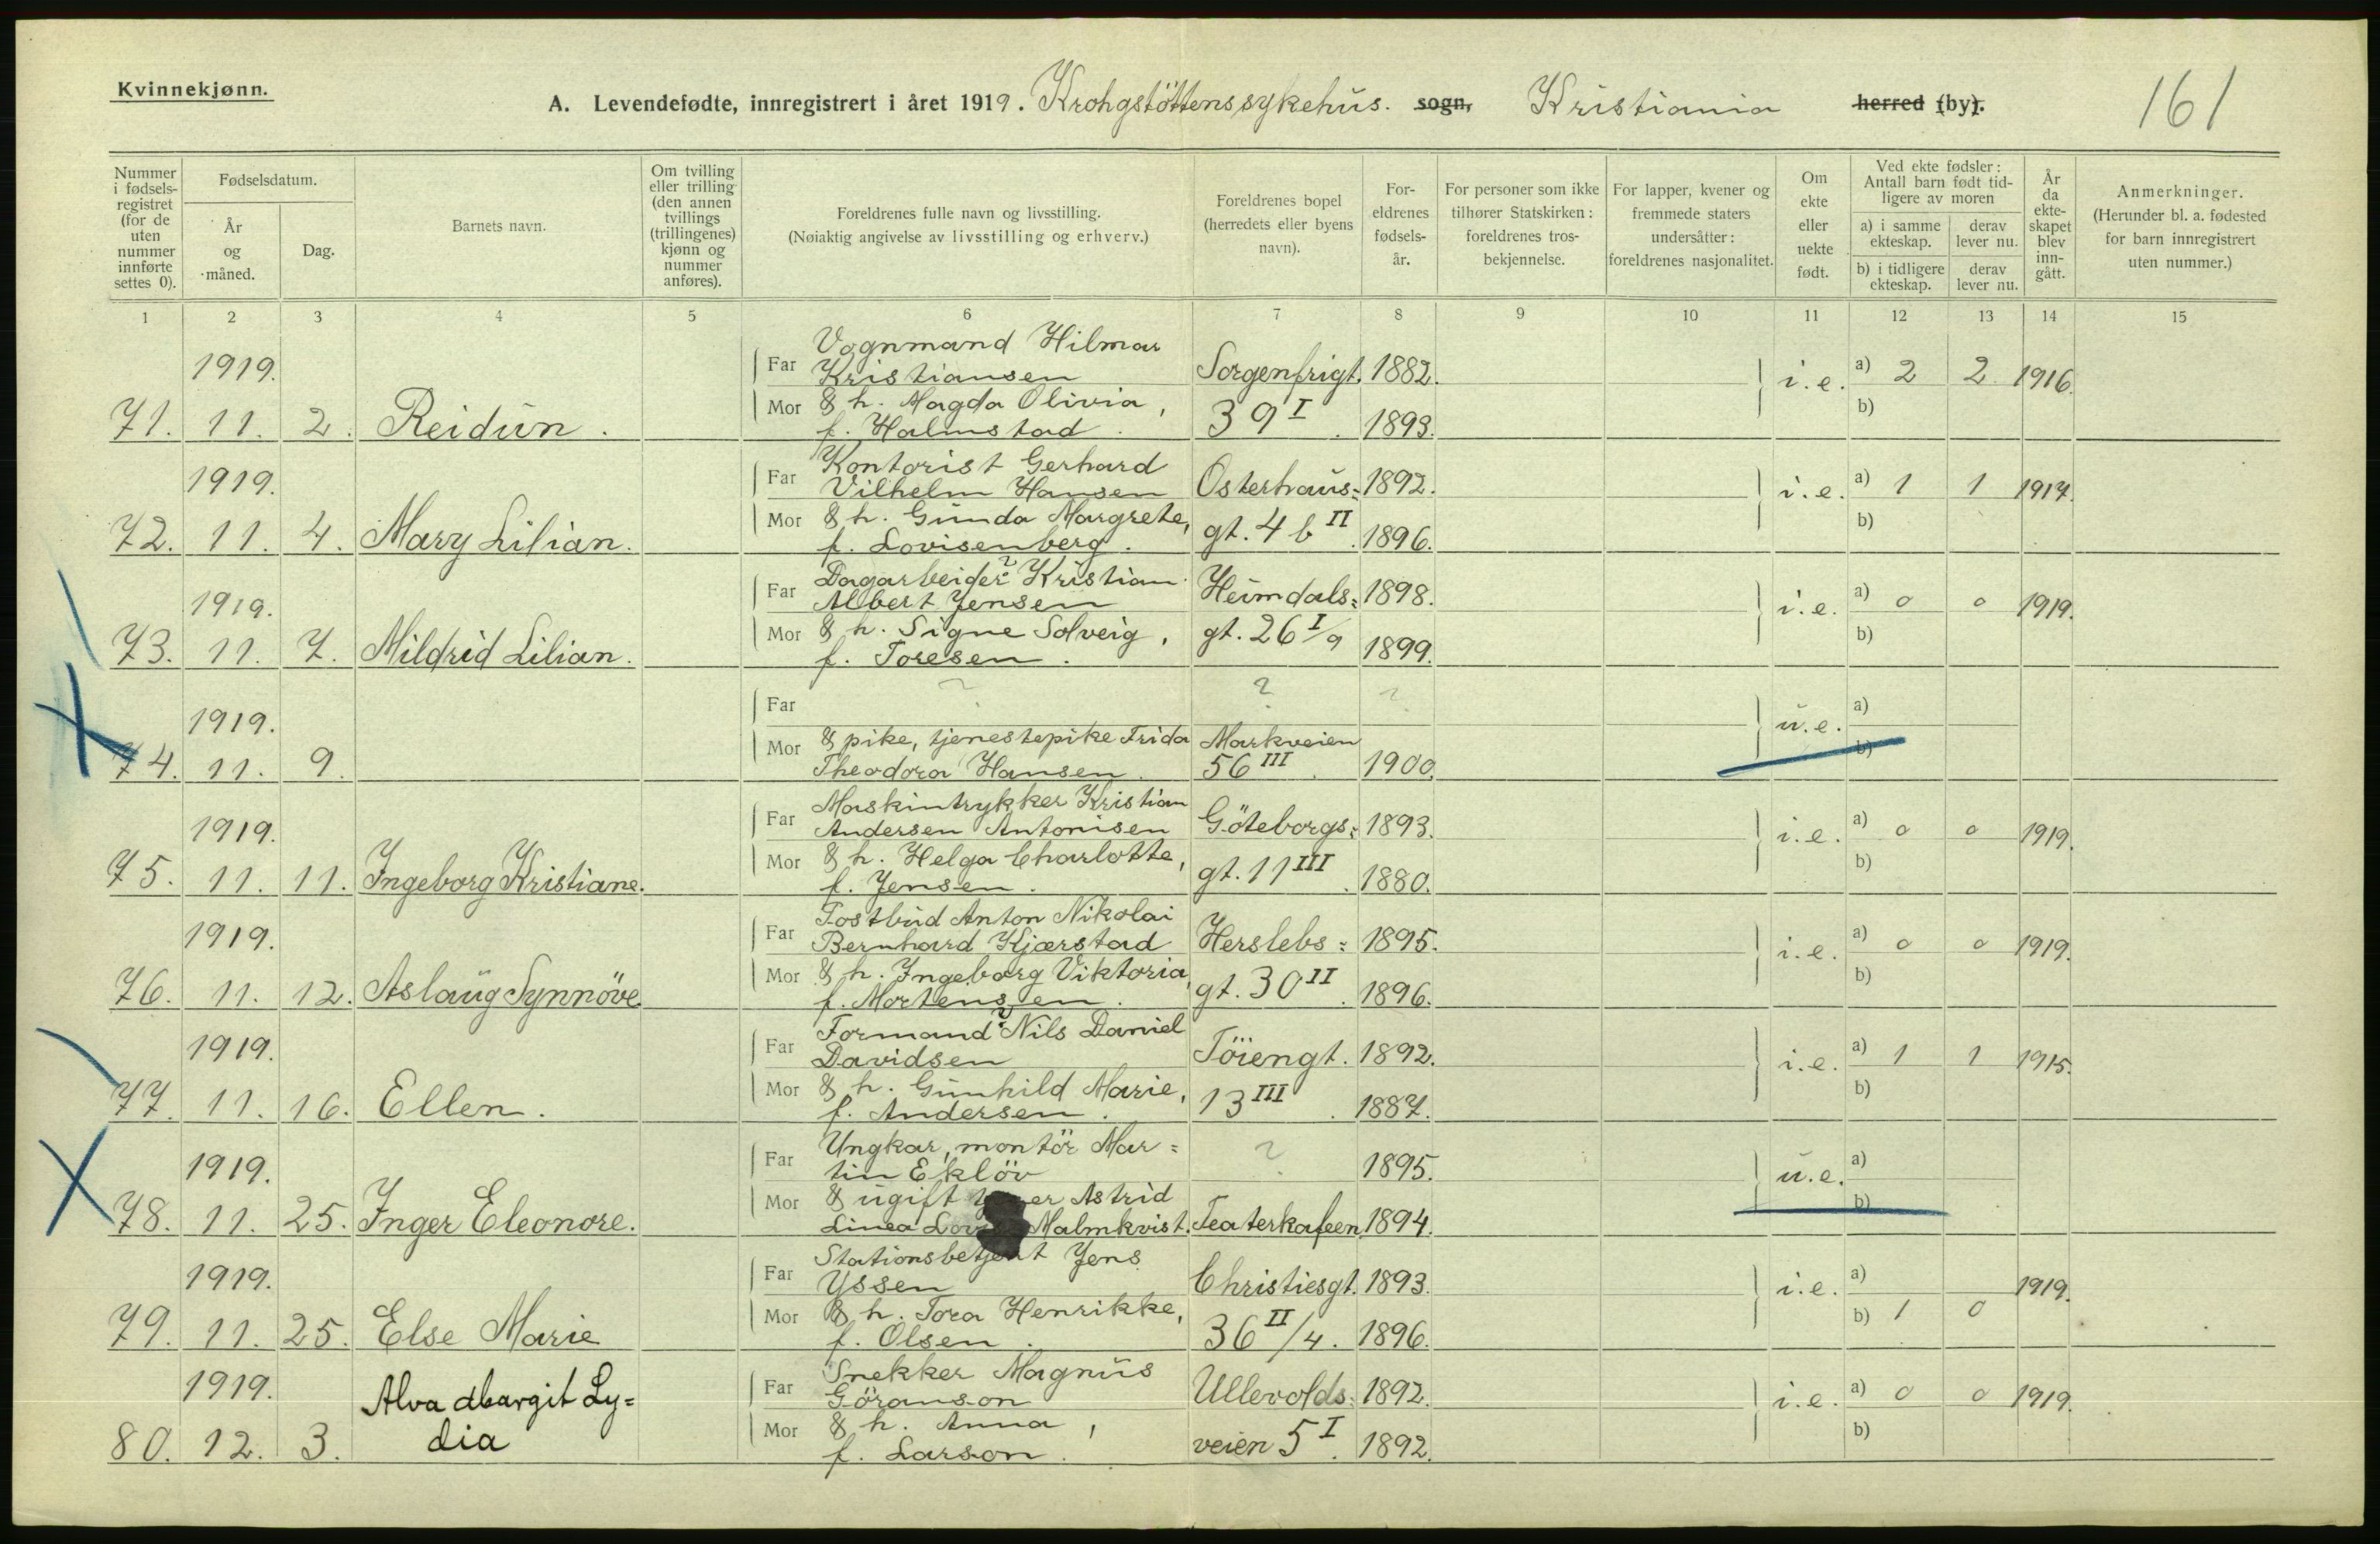 Kvinnekjønn.
A. Levendefødte, innregistrert i året 1919. Krohgstöttens sykehus. sogn, Kristiania herred (by). 161
Nummer i fødselsregistret (for de uten nummer innførte settes 0).
Fødselsdatum.
År og måned.
Dag.
Barnets navn.
Om tvilling eller trilling (den annen tvillings (trillingenes) kjønn og nummer anføres).
Foreldrenes fulle navn og livsstilling.
(Nøiaktig angivelse av livsstilling og erhverv.)
Foreldrenes bopel (herredets eller byens navn).
For-eldrenes fødsels-år.
For personer som ikke tilhører Statskirken: foreldrenes tros-bekjennelse.
For lapper, kvener og fremmede staters undersåtter: foreldrenes nasjonalitet.
Om ekte eller uekte født.
Ved ekte fødsler: Antall barn født tid-ligere av moren
a) i samme ekteskap. derav lever nu.
b) i tidligere ekteskap. derav lever nu.
År da ekte-skapet blev inn-gått.
Anmerkninger.
(Herunder bl. a. fødested for barn innregistrert uten nummer.)
1 2 3 4 5 6 7 8 9 10 11 12 13 14 15
Vognmand Hilmar
1919. Far Kristiansen Sorgenfrigt. 1882. i.e. a) 2 2 1916.
Mor & h. Magda Olivia, b)
71. 11. 2. Reidun. f. Halmstad. 39 I. 1893.
Kontorist Gerhard
1919. Far Vilhelm Hansen Osterhaus= 1892. i.e. a) 1 1 1917.
Mor & h. Gunda Margrete, b)
72. 11. 4. Mary Lilian. f. Lovisenberg. gt. 4 b II. 1896.
Dagarbeider ? Kristian
1919. Far Albert Jensen Heimdals= 1898. i.e. a) 0 0 1919.
Mor & h. Signe Solveig, gt. 26 I/9 b)
73. 11. 7. Mildrid Lilian. f. Toresen. 1899.
1919. Far ? ? ? u.e. a)
Mor & pike, tjenestepike Frida Markveien b)
74. 11. 9. Theodora Hansen. 56 III. 1900.
Maskintrykker Kristian
1919. Far Andersen Antonisen Göteborgs= 1893. i.e. a) 0 0 1919.
Mor & h. Helga Charlotte, b)
75. 11. 11. Ingeborg Kristiane. f. Jensen. gt. 11 III. 1880.
Postbud Anton Nikolai
1919. Far Bernhard Kjærstad Herslebs= 1895. i.e. a) 0 0 1919.
Mor & h. Ingeborg Viktoria, b)
76. 11. 12. Aslaug Synnöve. f. Mortensen. gt. 30 II. 1896.
Formand ? Nils Daniel
1919. Far Davidsen Töiengt. 1892. i.e. a) 1 1 1915.
Mor & h. Gunhild Marie, b)
77. 11. 16. Ellen. f. Andersen. 13 III. 1887.
Ungkar, montör Mar=
1919. Far tin Eklöv ? 1895. u.e. a)
Mor & ugift Astrid b)
78. 11. 25. Inger Eleonore. Linea Malmkvist. Teaterkafeen. 1894.
Stationsbetjent Jens
1919. Far Yssen Christiesgt. 1893. i.e. a) 1919.
Mor & h. Tora Henrikke, b) 1 0
79. 11. 25. Else Marie f. Olsen. 36 II/4. 1896.
Snekker Magnus
1919. Alva Margit Ly= Far Göranson Ullevolds= 1892. i.e. a) 0 0 1919.
Mor & h. Anna, b)
80. 12. 3. dia f. Larson. veien 5 I. 1892.